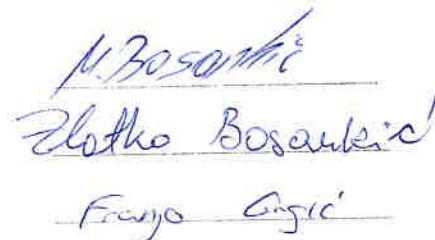 M. Bosankić
Zlatko Bosankić
Franjo